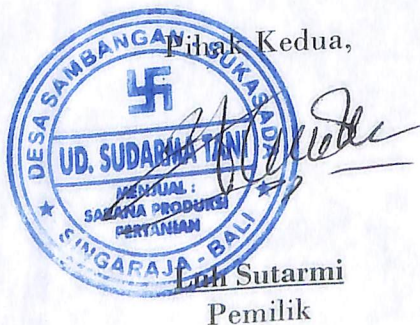 Pihak Kedua,
DESA SAMBANGAN - SUKASADA
UD. SUDARMA TANI
MENJUAL :
SARANA PRODUKSI
PERTANIAN
SINGARAJA - BALI
Luh Sutarmi
Pemilik